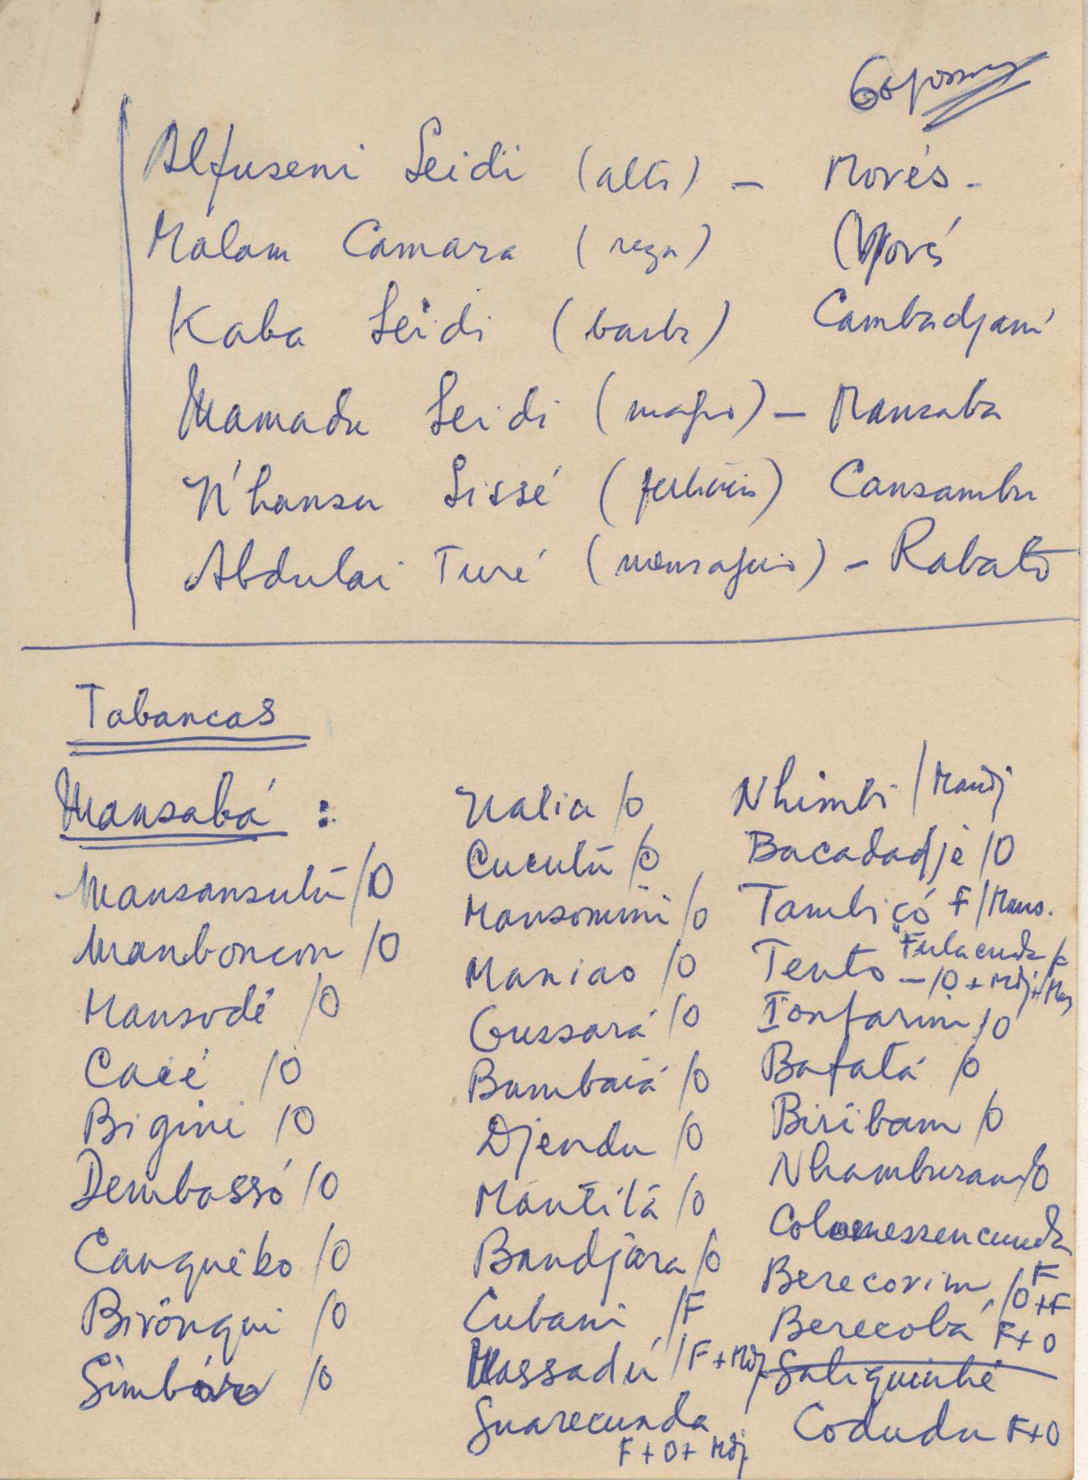 Alfuseni Seidi (alto) - Morés -
Malam Camara (reza) Morés
Kaba Seidi (barba) Cambadjani
Mamadu Seidi (magro) - Mansaba
N'hansu Sissé Cansambu
Abdulai Turé (mensageiro) - Rabato
Tabancas
Mansabá :
Mansansutú/O
Manboncon /O
Mansodé /O
Caié /O
Bigini /O
Dembassó /O
Canquêbo /O
Birônqui /O
Simbáro /O
Ualia /O
Cucutú /O
Mansomini /O
Maniao /O
Gussará /O
Bumbaiá /O
Djendu /O
Mantilá /O
Bandjára /O
Cubani /F
Massadú /F + Mdj
Guarecunda
F + O + Mdj
Nhimbi / Mandj
Bacadadjè /O
Tambicó F/Mans.
Tento - /O + Mdj + Mans
Fulacunda
Fonfarim /O
Bafatá /O
Biribam /O
Nhamburam /O
Colomessencunda
F
Berecorim /O + F
Berecobá F+O
Saliquinhé
Cododu F+O